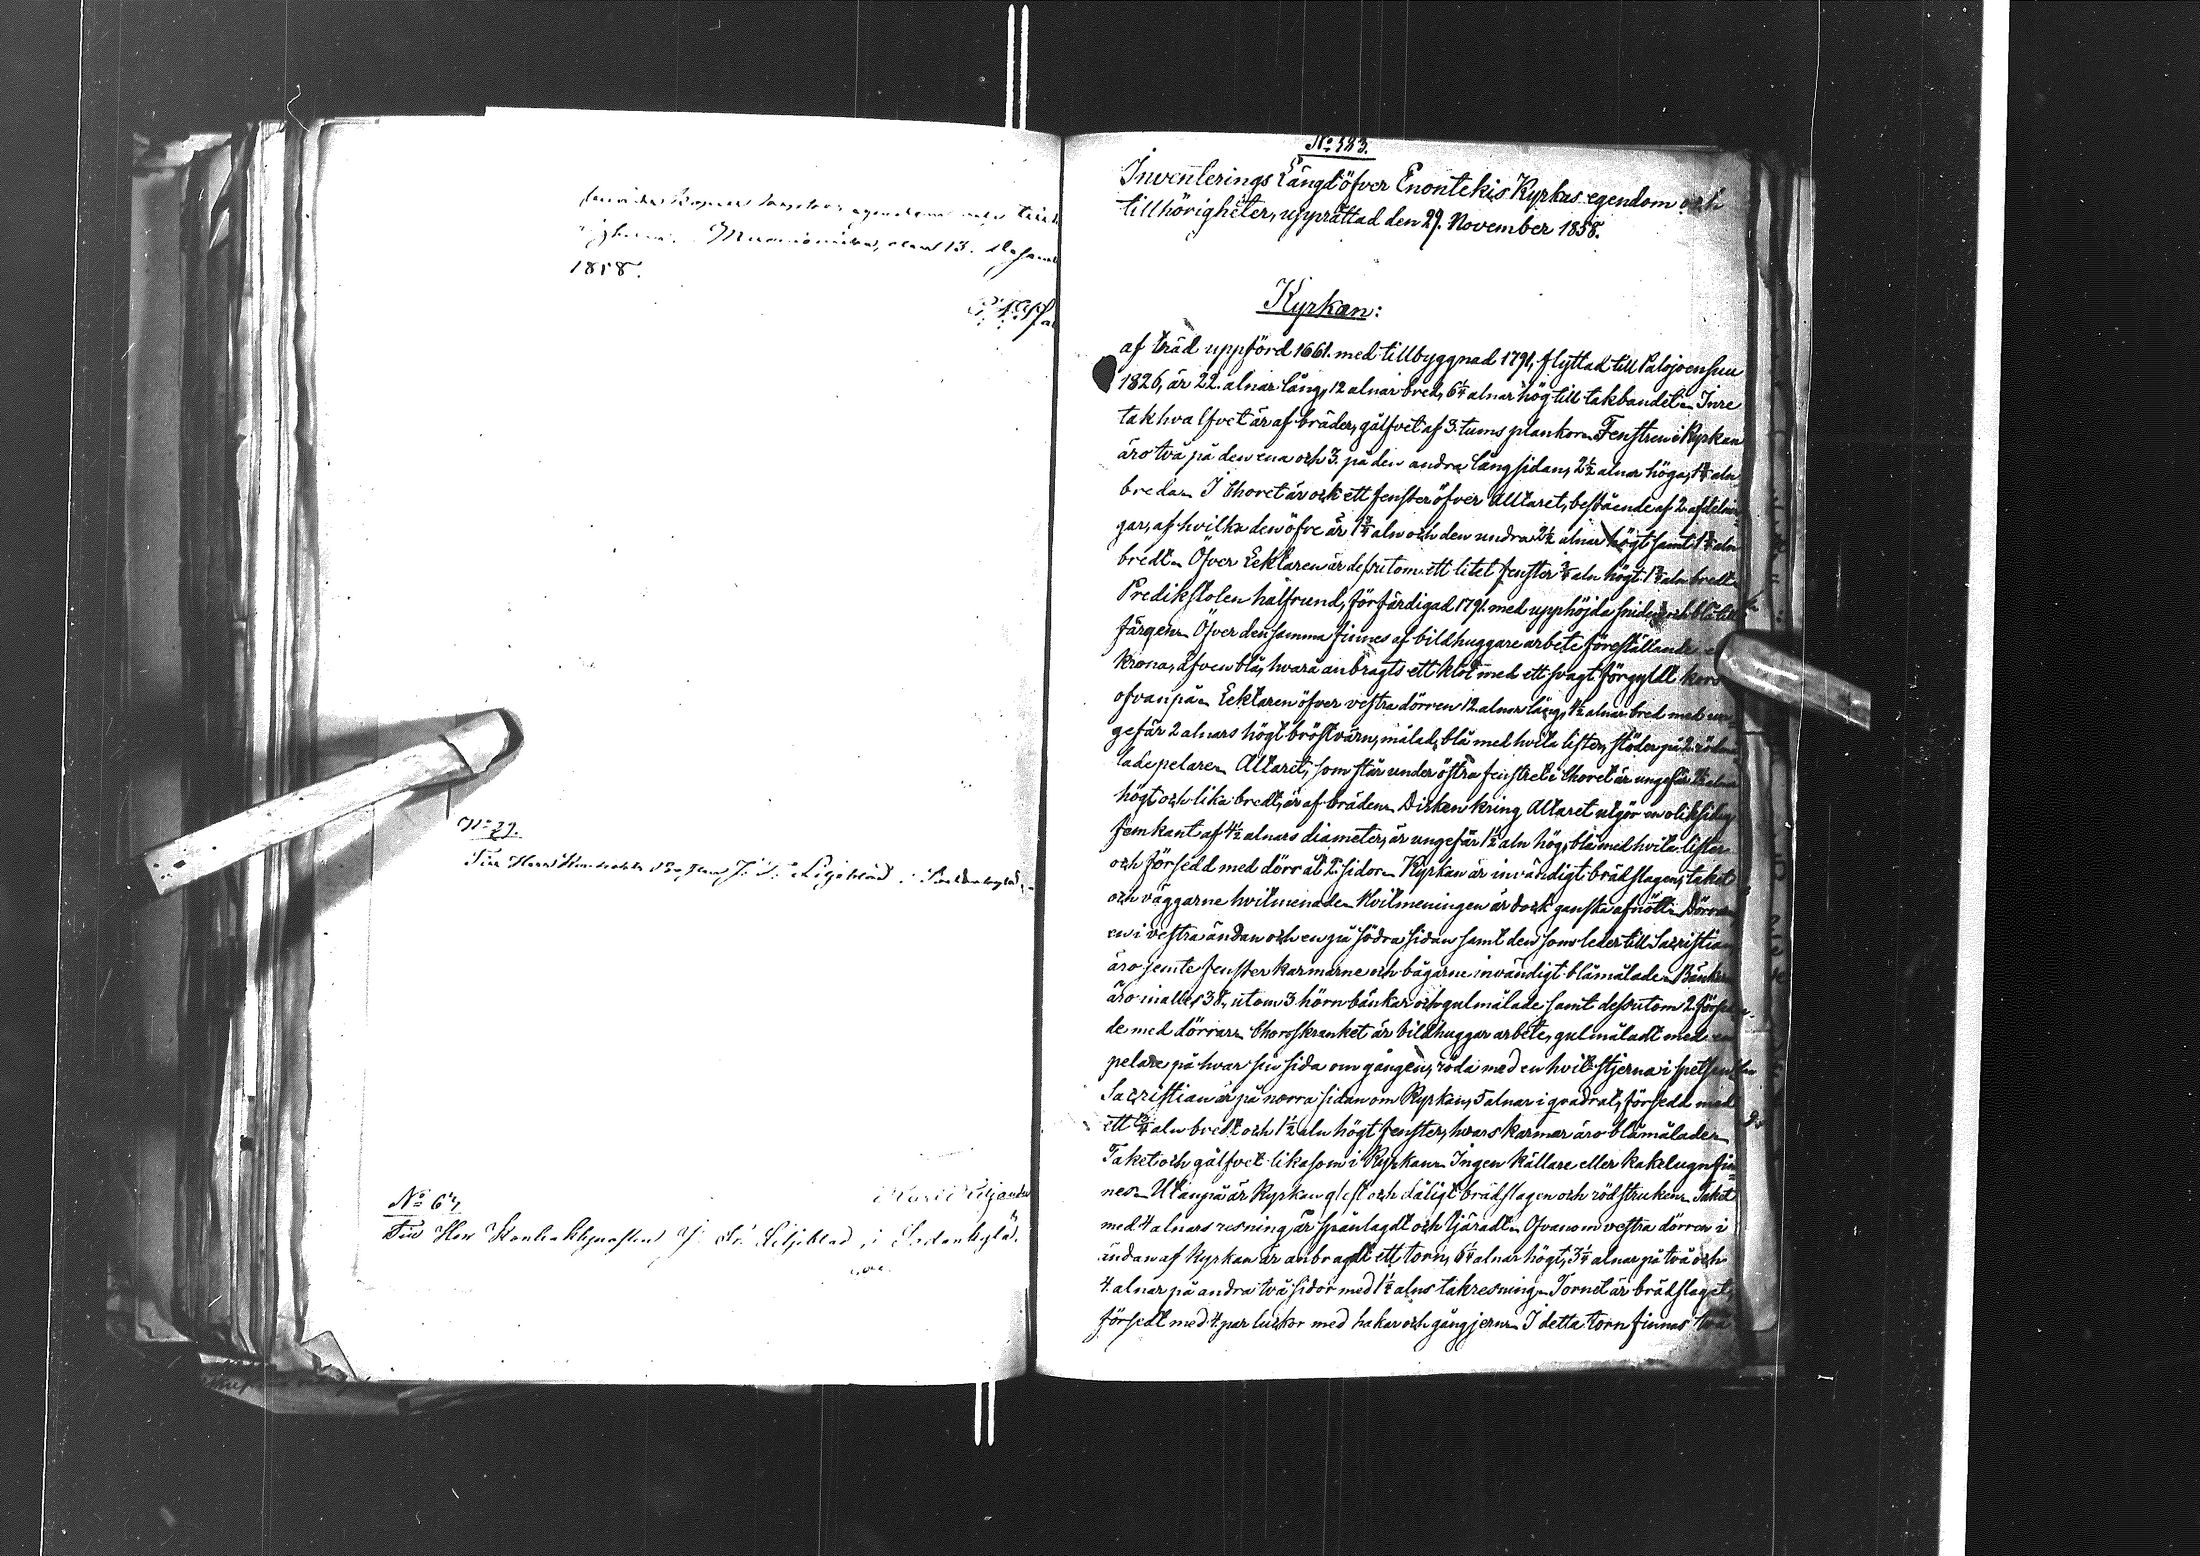 1858.
No 29.
No 67
Till Herr Kontraktsprosten J. Fr. Liljeblad i Sodankylä.
No 583.
Inventerings Längd öfver Enontekis Kyrkas egendom och
tillhörigheter, upprättad den 29. November 1858.
Kyrkan:
af träd uppförd 1661. med tillbyggnad 1791, flyttad till Palojoensuu
1826, är 22. alnar lång, 12 alnar bred, 6¼ alnar hög till takbandet. Inre
takhvalfvet är af bräder, gålfvet af 3. tums plankor. Fenstren i Kyrkan
äro två på den ena och 3. på den andra långsidan, 2½ alnar höga, aln
breda. I Choret är ock ett fenster öfver Altaret, bestående af 2. afdelnin-
gar, af hvilka den öfre är 1¾ aln och den undra 2½ alnar högt samt 1¾ aln
bredt. Öfver Lektaren är dessutom ett litet fenster ¾ aln högt 1¾ aln bredt.
Predikstolen halfrund, förfärdigad 1791. med upphöjda och blå till
färgen. Öfver densamma finnes af bildhuggare arbete föreställande en
krona, äfven blå, hvarå anbragts ett klot med ett svagt förgyldt kors
ofvanpå. Lektaren öfver vestra dörren 12. alnar lång, 4½ alnar bred med un-
gefär 2 alnars högt bröstvärn, målad, blå med hvita lister, stöder på 2. rödmå-
lade pelare. Altaret, som står under östra fenstret i Choret är ungefär alnar
högt och lika bredt, är af bräden. Disken kring Altaret utgör en oliksidig
femkant af 4½ alnars diameter, är ungefär 1½ aln hög, blå med hvita lister
och försedd med dörr åt 2. sidor. Kyrkan är invändigt brädslagen, taket
och väggarne hvitmenade. Hvitmeningen är dock ganska afnött. Dörren
en i vestra ändan och en på södra sidan samt den som leder till Sacristian
äro jemte fensterkarmarne och bågarne invändigt blåmålade. Bänkar
äro inalles 38, utom 3 hörnbänkar och gulmålade samt dessutom 2 försed-
de med dörrar. Chorskranket är bildhuggar arbete, gulmåladt med en
pelare på hvar sin sida om gången, röda med en hvit stjerna i spetsen
Sacristian är på norra sidan om Kyrkan, 5 alnar i qvadrat, försedd med
ett ¾ aln bredt och 1½ aln högt fenster, hvars karmar äro blåmålade.
Taket och gålfvet likasom i Kyrkan. Ingen källare eller kakelugn fin-
nes. Utanpå är Kyrkan glest och dåligt brädslagen och rödstruken. Taket
med 4 alnars resning, är spånlagdt och tjäradt. Ofvanom vestra dörren i
ändan af Kyrkan är anbragdt ett torn, 6¼ alnar högt, 3¼ alnar på två och
4. alnar på andra två sidor med 1½ alns takresning. Tornet är brädslaget,
försedt med 4. par luckor med hakar och gångjern. I detta torn finnas två